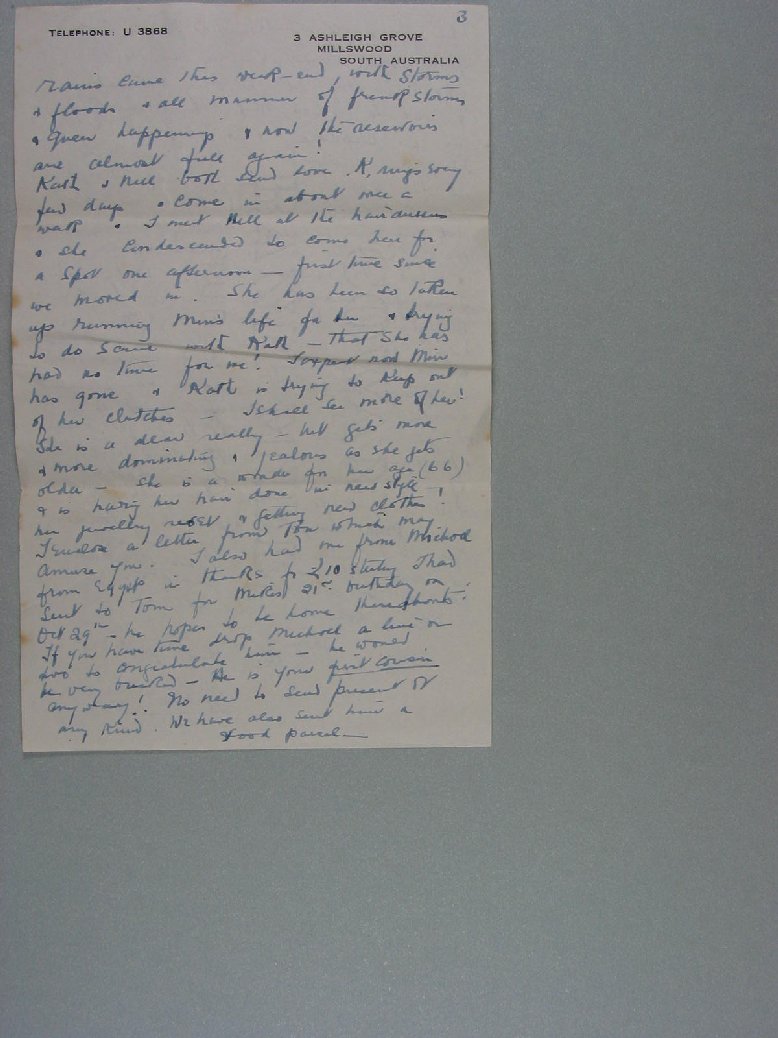 3
TELEPHONE: U 3868
3 ASHLEIGH GROVE
MILLSWOOD
SOUTH AUSTRALIA
rains came this week-end, with storms
& floods & all manner of freak storms
& queer happenings & now the reservoirs
are almost full again!
Kath & Nell both send love. K. rings every
few days & come in about once a
week. I met Nell at the hairdressers
& she condescended to come here for
a spot one afternoon — first time since
we moved in. She has been so taken
up running Min's life for her & trying
to do same with Kath — that she has
had no time for me! I expect now Min
has gone & Kath is trying to keep out
of her clutches — I shall see more of her!
She is a dear really — but gets more
& more dominating & jealous as she gets
older — She is a wonder for her age (66)
& is having her hair done in new style —
her jewellery reset & getting new clothes!
I enclose a letter from Tom which may
amuse you. I also had one from Michael
from Egypt in thanks for £10 sterling I had
sent to Tom for Mike's 21st birthday on
Oct 29th — he hopes to be home thereabouts.
If you have time drop Michael a line or
two to congratulate him — he would
be very bucked — He is your first cousin
anyway! No need to send present of
any kind. We have also sent him a
food parcel —